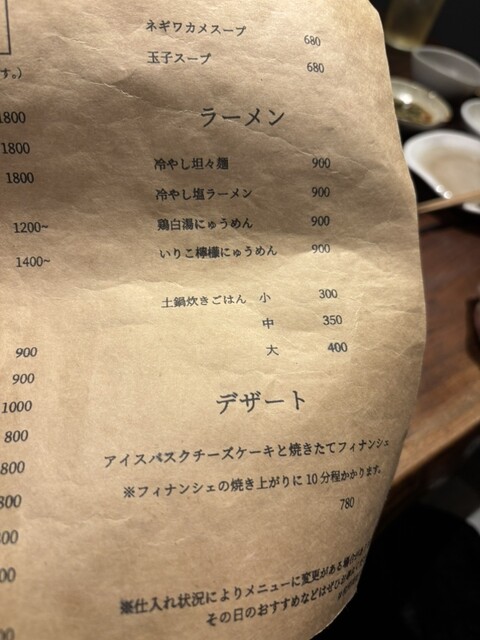 ネギワカメスープ 680
玉子スープ 680
す。)
1800
1800
1800
1200~
1400~
900
900
1000
800
800
800
ラーメン
冷やし坦々麺 900
冷やし塩ラーメン 900
鶏白湯にゅうめん 900
いりこ檸檬にゅうめん 900
土鍋炊きごはん 小 300
中 350
大 400
デザート
アイスバスクチーズケーキと焼きたてフィナンシェ
※フィナンシェの焼き上がりに10分程かかります。
780
※仕入れ状況によりメニューに変更がある場合が
その日のおすすめなどはぜひお